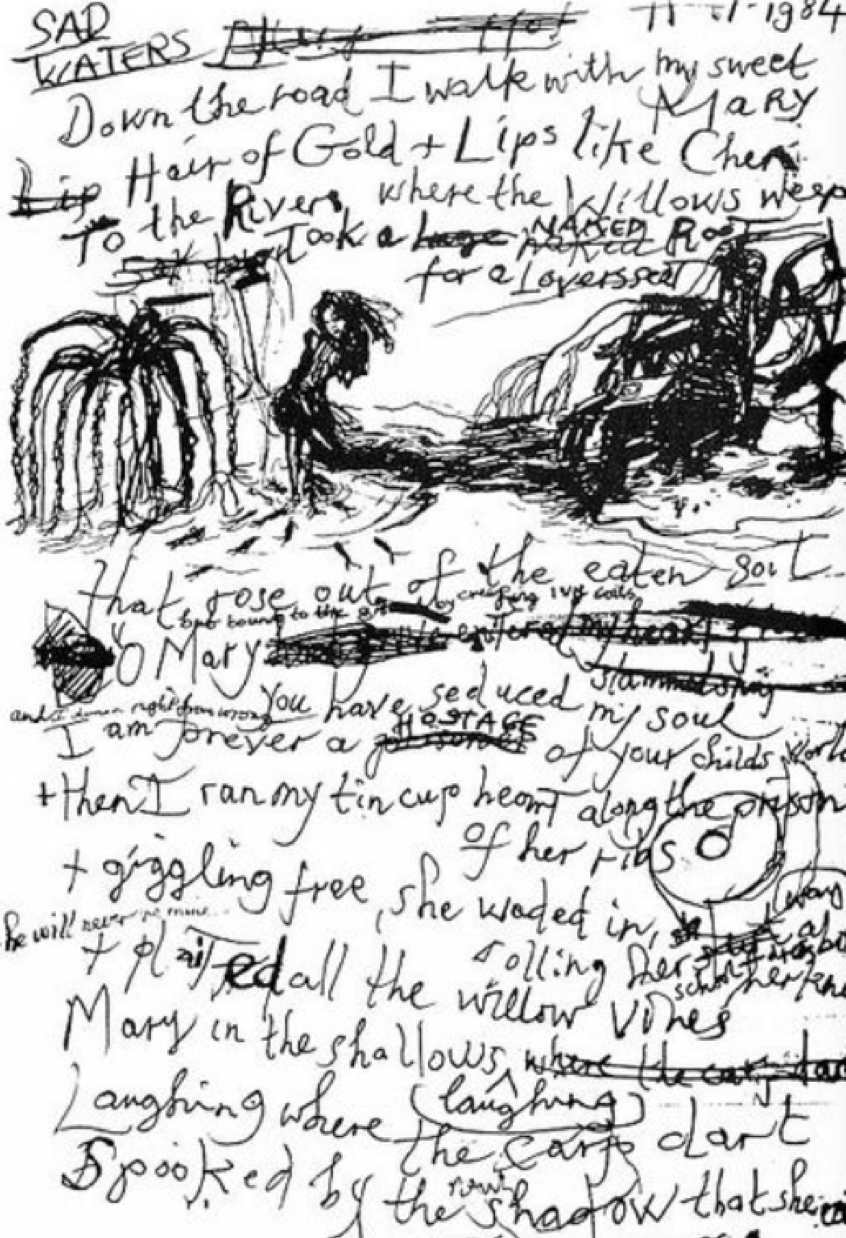 SAD
WATERS
11-1-1984
Down the road I walk with my sweet
MARY
Lip Hair of Gold + Lips like Cherr
To the River, where the Willows weep
Took a huge naked NAKED Root
for a Loversseat
that rose out of the eaten soil
but bound to the by creeping ivy coils
O Mary
you have seduced my soul
and I don't know right from wrong
I am forever a HOSTAGE prisoner of your childs world
+ then I ran my tin cup heart along the prison
of her ribs
+ giggling free, she waded in,
she will never be mine...
rolling her
+ plaited all the willow vines
Mary in the shallows, where the carp dar
Laughing where (laughing)
the carp dart
Spooked by the new shadow that she ca